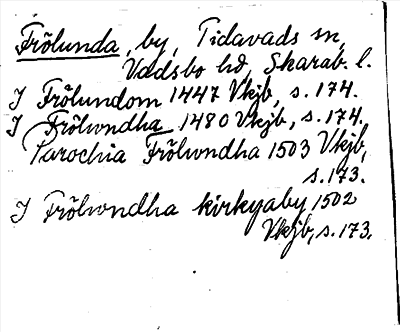 Frölunda, by, Tidavads sn,
Vadsbo hd, Skarab. l.
J Frölundom 1447 Vkjb, s. 174.
J Frölwndha 1480 Vkjb, s. 174.
Parochia Frölwndha 1503 Vkjb,
s. 173.
J Frölwndha kirkyaby 1502
Vkjb, s. 173.